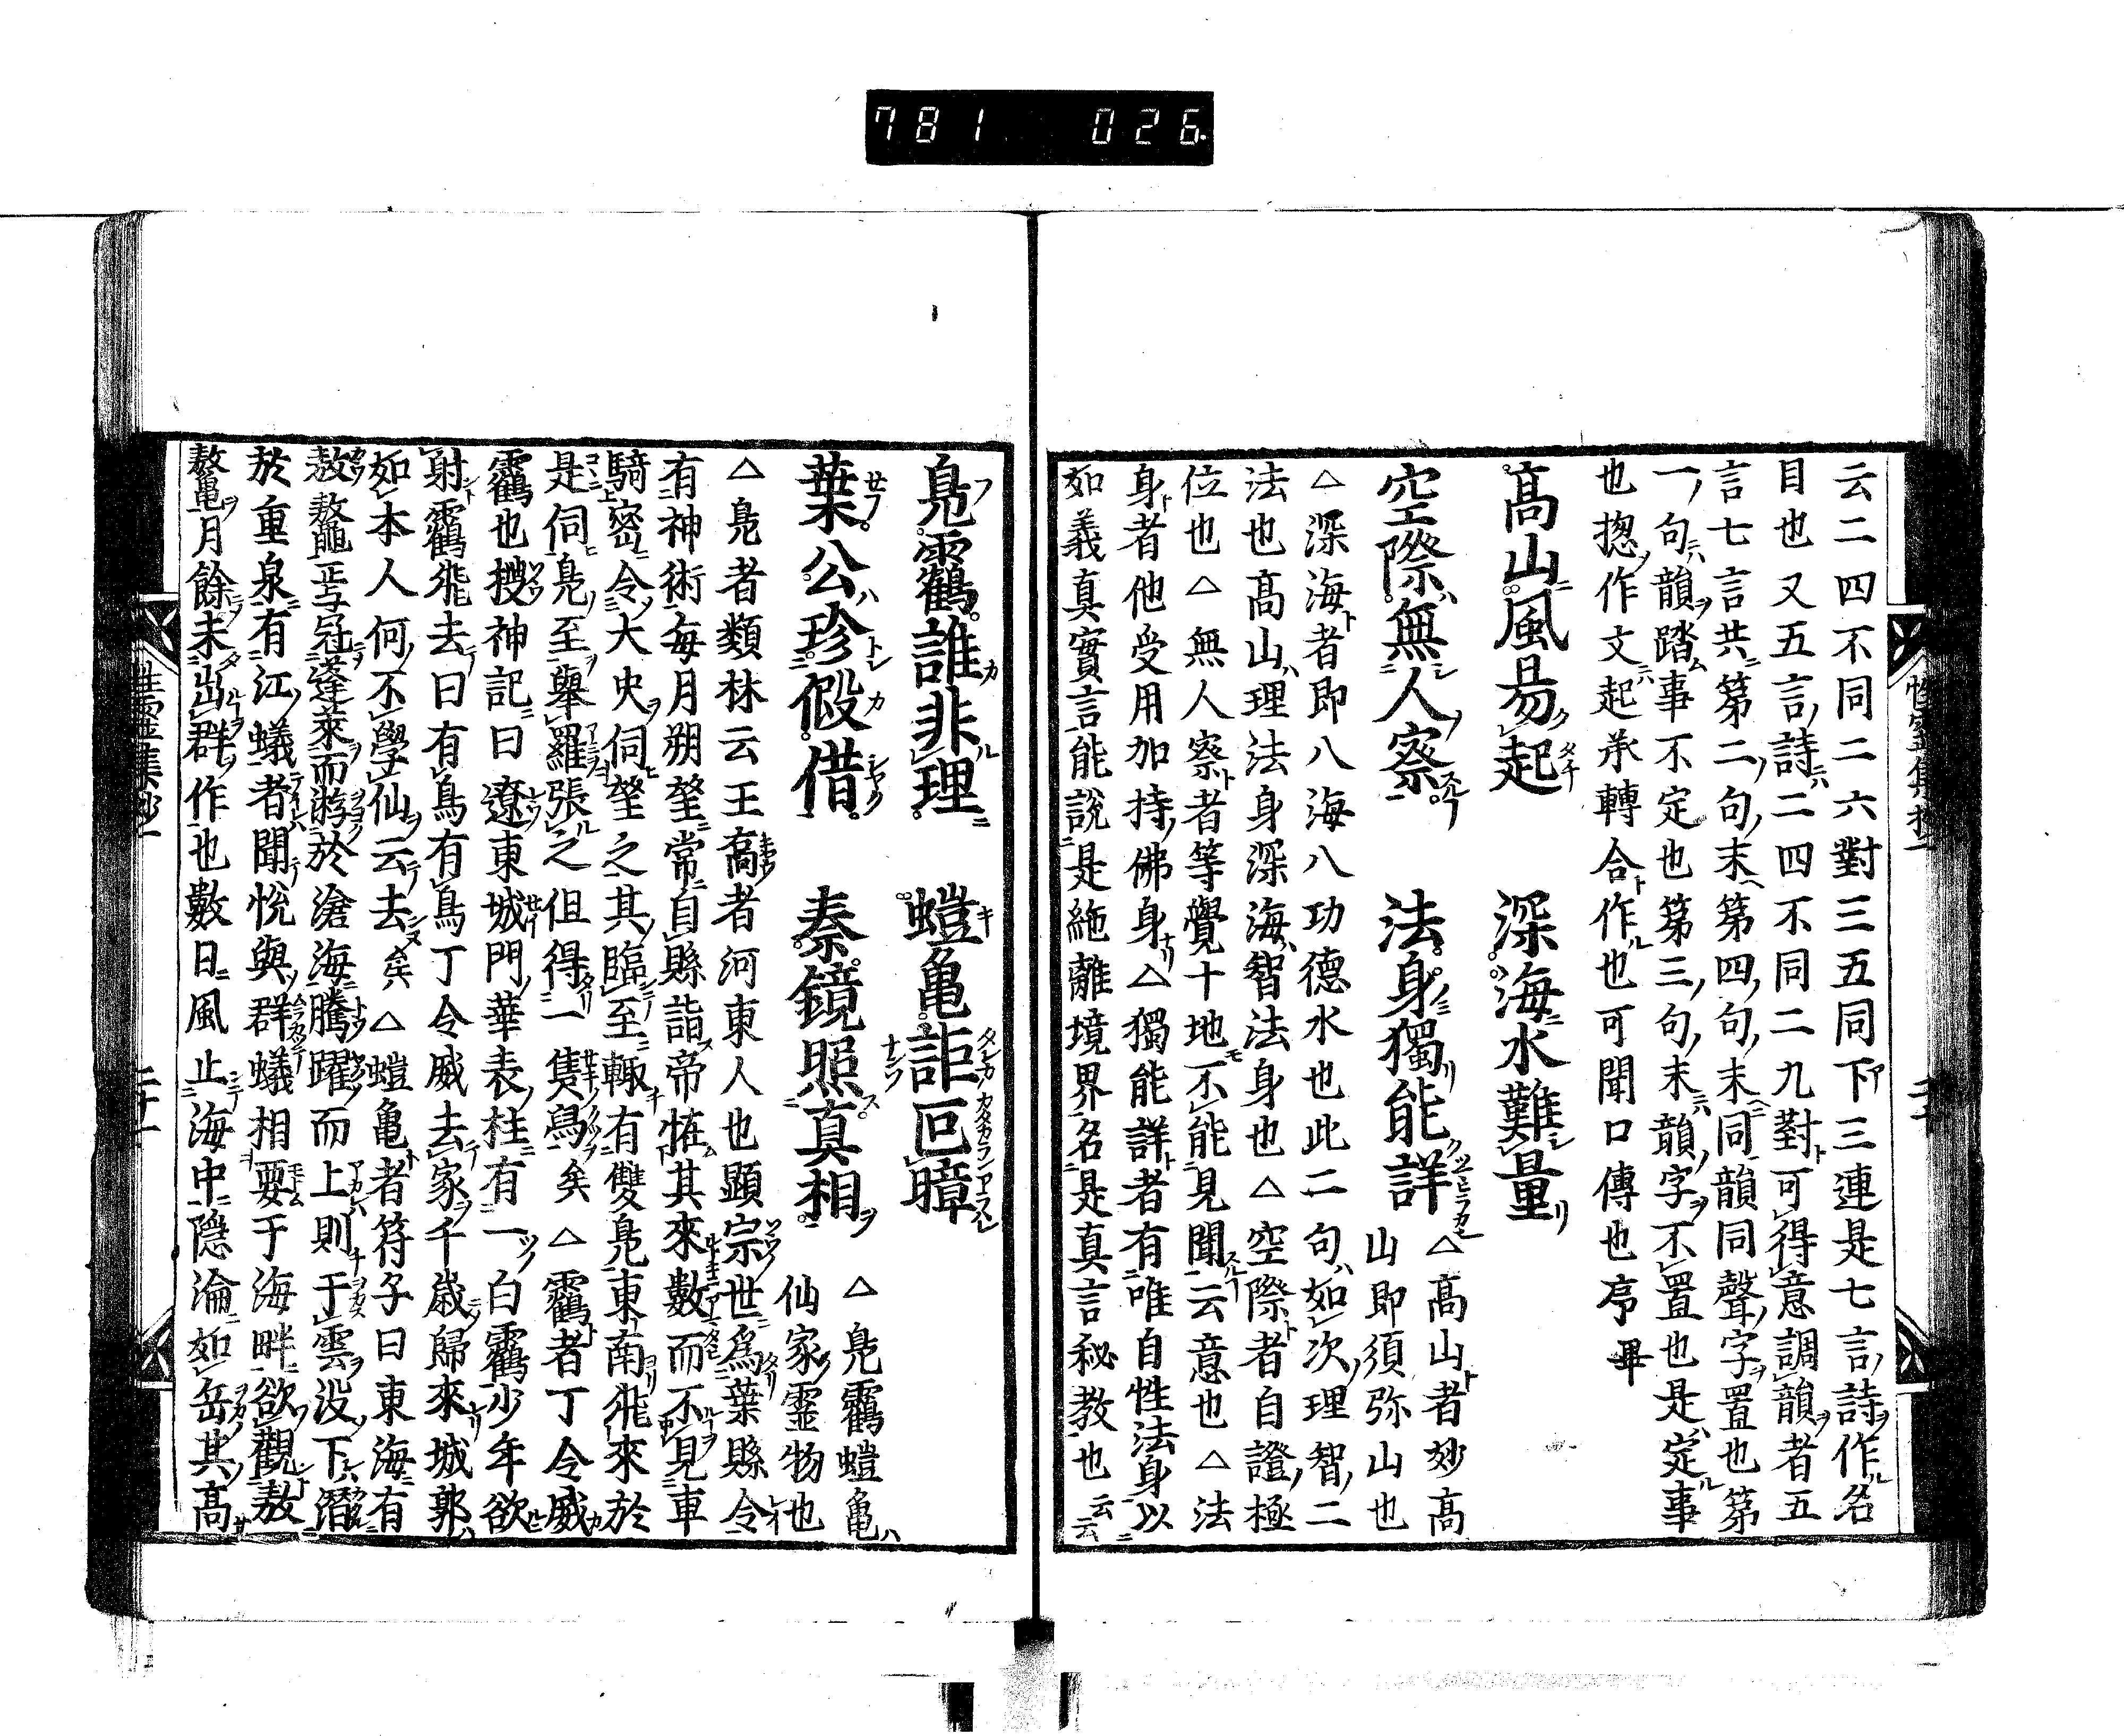 781 026
云二四不同二六對三五同下三連是七言詩作名
目也又五言詩二四不同二九對可得意調韻者五
言七言共第二句末第四句末同韻同聲字置也第
一句韻踏事不定也第三句末韻字不置也是定事
也揔作文起承轉合作也可聞口傳也序畢
高山風易起 深海水難量
空際無人察 法身獨能詳
△高山者妙高
山即須弥山也
△深海者即八海八功德水也此二句如次理智二
法也高山理法身深海智法身也△空際者自證極
位也△無人察者等覺十地不能見聞云意也△法
身者他受用加持佛身△獨能詳者有唯自性法身以
如義真實言能說是絶離境界名是真言秘教也云云
鳧靏誰非理 螘亀詎叵暲
葉公珍假借 秦鏡照真相
△鳧靏螘亀
仙家靈物也
△鳧者類林云王高者河東人也顯宗世爲葉縣令
有神術每月朔望常自縣詣帝恠其來數而不見車
騎密令大史伺望之其臨至輙有雙鳧東南飛來於
是伺鳧至擧羅張之但得一隻舄矣△靏者丁令威
靏也搜神記曰遼東城門華表柱有一白靏少年欲
射靏飛去曰有鳥有鳥丁令威去家千歳歸來城郭
如本人何不學仙云去矣△螘亀者符子曰東海有
鼇冠蓬萊而游於滄海騰躍而上則于雲没下潛
於重泉有江蟻者聞悅與群蟻相要于海畔欲觀
月餘未出群作也數日風止海中隱淪如岳其高